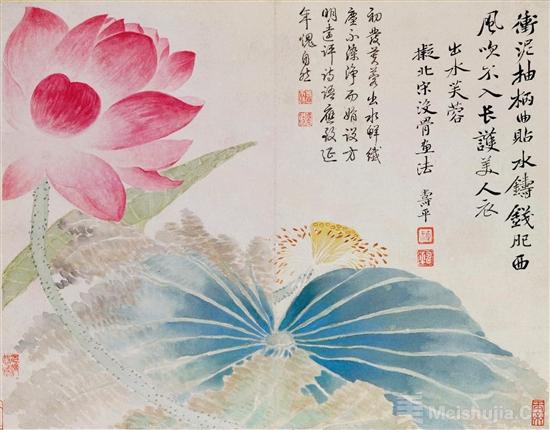 衝泥抽柄曲貼水鑄錢肥西
風吹不入长護美人衣
出水芙蓉
擬北宋没骨画法
壽平
初發芙蓉出水鮮纖
塵不染淨而娟設方
明遠評詩語應救延
年愧自然
Meishujia.C